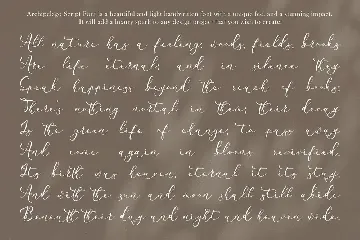 Archipelago Script Font is a beautiful and light handwritten font with a unique feel and a stunning impact.
It will add a luxury spark to any design project that you wish to create.
All nature has a feeling: woods, fields, brooks
Are life eternal; and in silence they
Speak happiness beyond the reach of books;
There's nothing mortal in them; their decay
Is the green life of change; to pass away
And come again in blooms revivified.
Its birth was heaven, eternal it its stay,
And with the sun and moon shall still abide
Beneath their day and night and heaven wide.